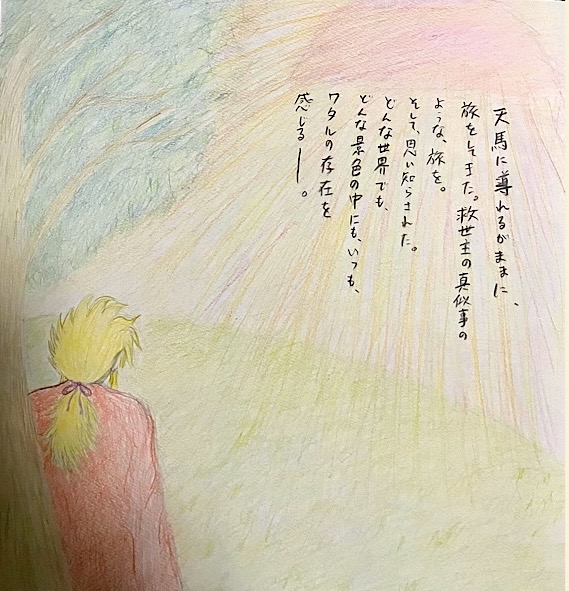 天馬に導れるがままに、
旅をしてきた。救世主の真似事の
ような、旅を。
そして、思い知らされた。
どんな世界でも、
どんな景色の中にも、いつも、
ワタルの存在を
感じる――。